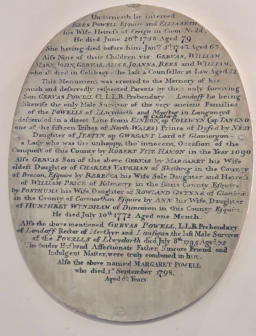 Underneath be interred
REES POWELL Esquire and ELIZABETH
his Wife, Heiress of Cregin in Com.
He died June 1738 Aged 79
She having died before him Jany 1742 Aged 63
Also Nine of their Children viz GERVAS, WILLIAM
MARY, JOHN, GERVAS, ALICE, JOANNA, REES and WILLIAM,
who all died in Celibacy: the last a Counsellor at Law Aged
This Monument was erected to the Memory of his
much and deservedly respected Parents by the only surviving
Son GERVAS POWELL Cl. L.L.B. Prebendary of Landaff he being
likewise the only Male Survivor of the very ancient Families
of the POWELLS of Llwydarth and Maesteg in Langonoyd
deforced in a direct Line from EINION, ap COLLWYN
one of the fifteen Tribes of North WALES Prince of Dyfed by NEST
Daughter of JUSTIN ap GWRGANT Lord of Glamorgan
a Lady who was the unhappy, tho' innocent, Occasion of the
Conquest of this County by ROBERT FITZ HAMON in the Year 1090
Also GERVAS Son of the above GERVAS by MARGARET his Wife
Daughter of CHARLES VAUGHAN of in the County
of Brecon, Esquire by REBECCA his Wife Sole Daughter and Heiress
of WILLIAM PRICE of in the County Esquire
by POSTHUMA his Wife, Daughter of ROWLAND GWYNNE of
in the County of Carmarthen Esquire by ANN his Wife, Daughter
of HUMPHREY WYNDHAM of Dunraven in this County Esquire
He died July 10th 1772 Aged one Month.
Also the above mentioned GERVAS POWELL, L.L.B. Prebendary
of Landaff Rector of Merthyr and Lanfigan the last Male Survivor
of the POWELLS of Llwydarth died July 1795 Aged
The tender Husband Affectionate Father, Sincere Friend and
Indulgent Master, were truly combined in him.
Also the above named MARGARET POWELL
who died 1st September 1798.
Aged Years